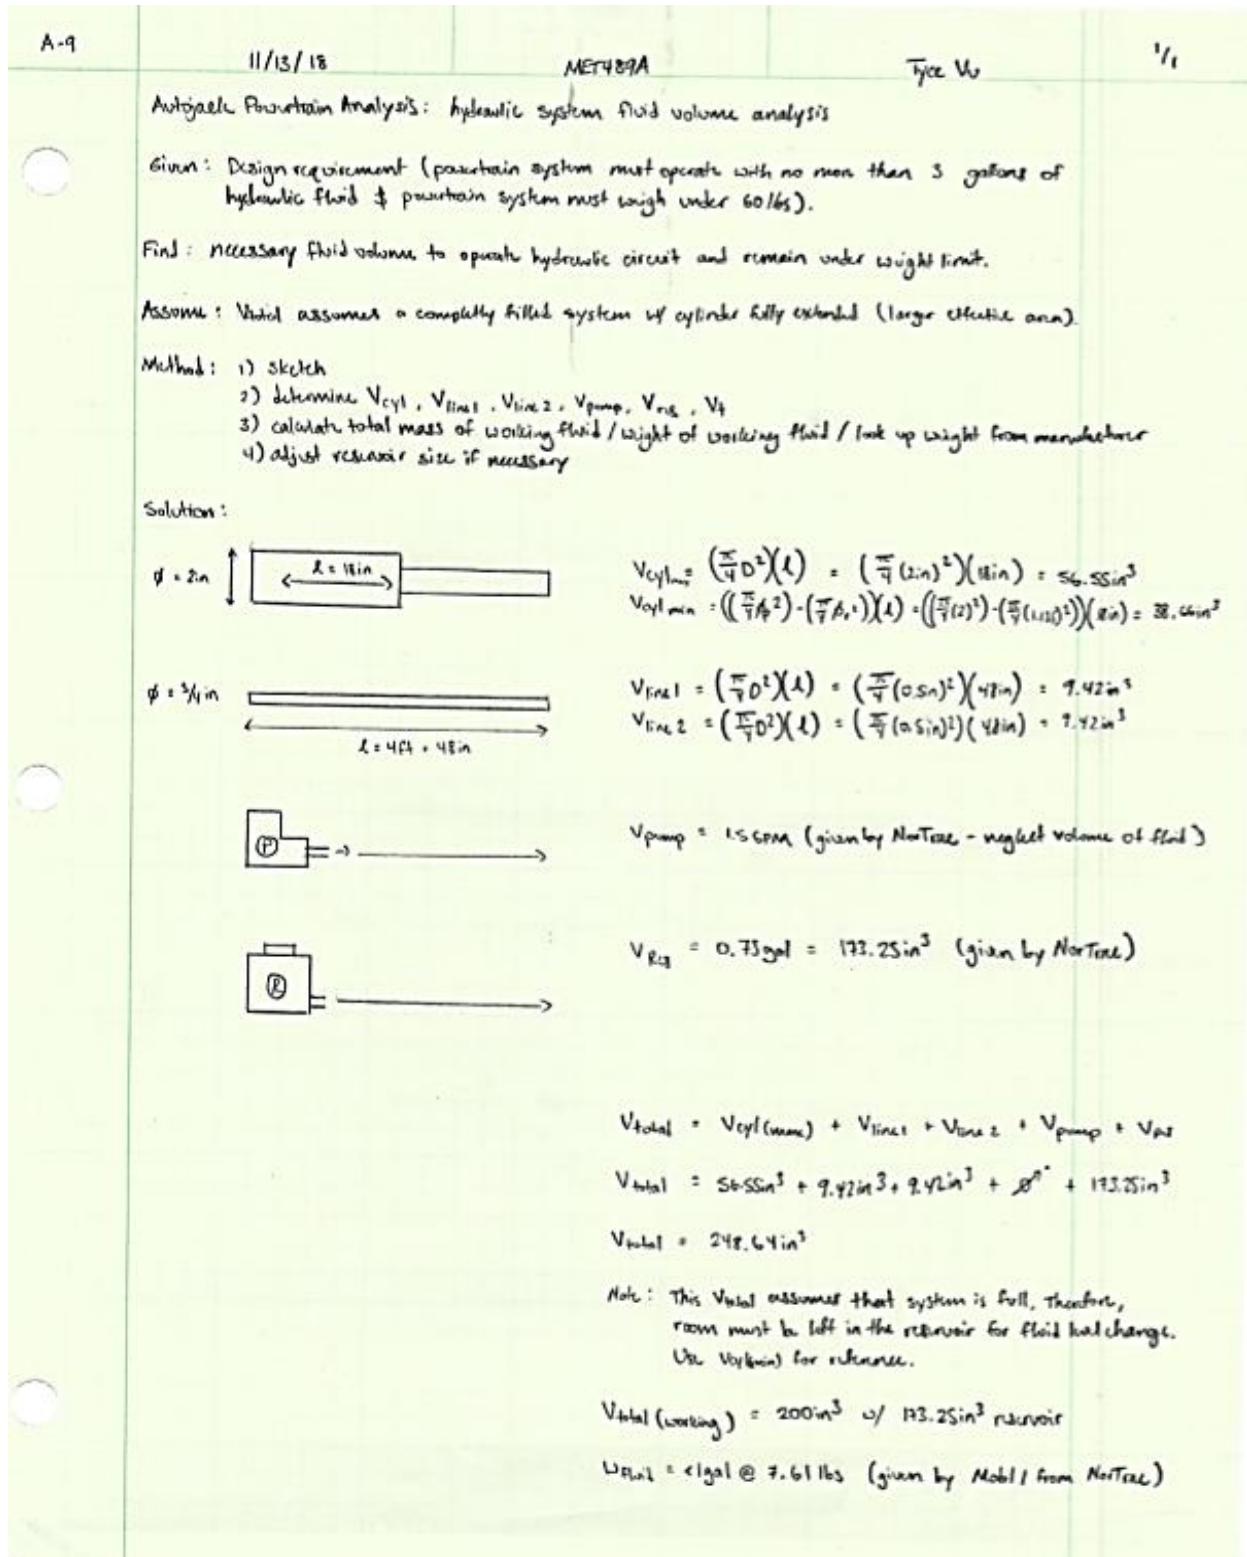 A-9
11/13/18 MET489A Tyce Vu 1/1
Autojack Powertrain Analysis: hydraulic system fluid volume analysis
Given: Design requirement (powertrain system must operate with no more than 3 gallons of
hydraulic fluid & powertrain system must weigh under 60 lbs).
Find: necessary fluid volume to operate hydraulic circuit and remain under weight limit.
Assume: Vtotal assumes a completly filled system w/ cylinder fully extended (larger effective area).
Method: 1) sketch
2) determine Vcyl, Vline1, Vline2, Vpump, Vres, Vt
3) calculate total mass of working fluid / weight of working fluid / look up weight from manufacturer
4) adjust reservoir size if necessary
Solution:
ϕ = 2in l = 18in Vcyl = (π/4 D²)(l) = (π/4 (2in)²)(18in) = 56.55in³
Vcyl min = ((π/4 2) - (π/4 2))(l) = ((π/4 (2)²) - (π/4 ( )²))(18in) = 38.66in³
ϕ = 3/4 in Vline1 = (π/4 D²)(l) = (π/4 (0.5in)²)(48in) = 9.42in³
Vline2 = (π/4 D²)(l) = (π/4 (0.5in)²)(48in) = 9.42in³
l = 4ft = 48in
P Vpump = 1.5 GPM (given by NorTrac - neglect volume of fluid)
R VRes = 0.75gal = 173.25in³ (given by NorTrac)
Vtotal = Vcyl(max) + Vline1 + Vline2 + Vpump + Vres
Vtotal = 56.55in³ + 9.42in³ + 9.42in³ + 0 + 173.25in³
Vtotal = 248.64in³
Note: This Vtotal assumes that system is full, Therefore,
room must be left in the reservoir for fluid level change.
Use Vcyl(min) for reference.
Vtotal (working) = 200in³ w/ 173.25in³ reservoir
Wfluid = <1gal @ 7.61 lbs (given by Mobil 1 from NorTrac)